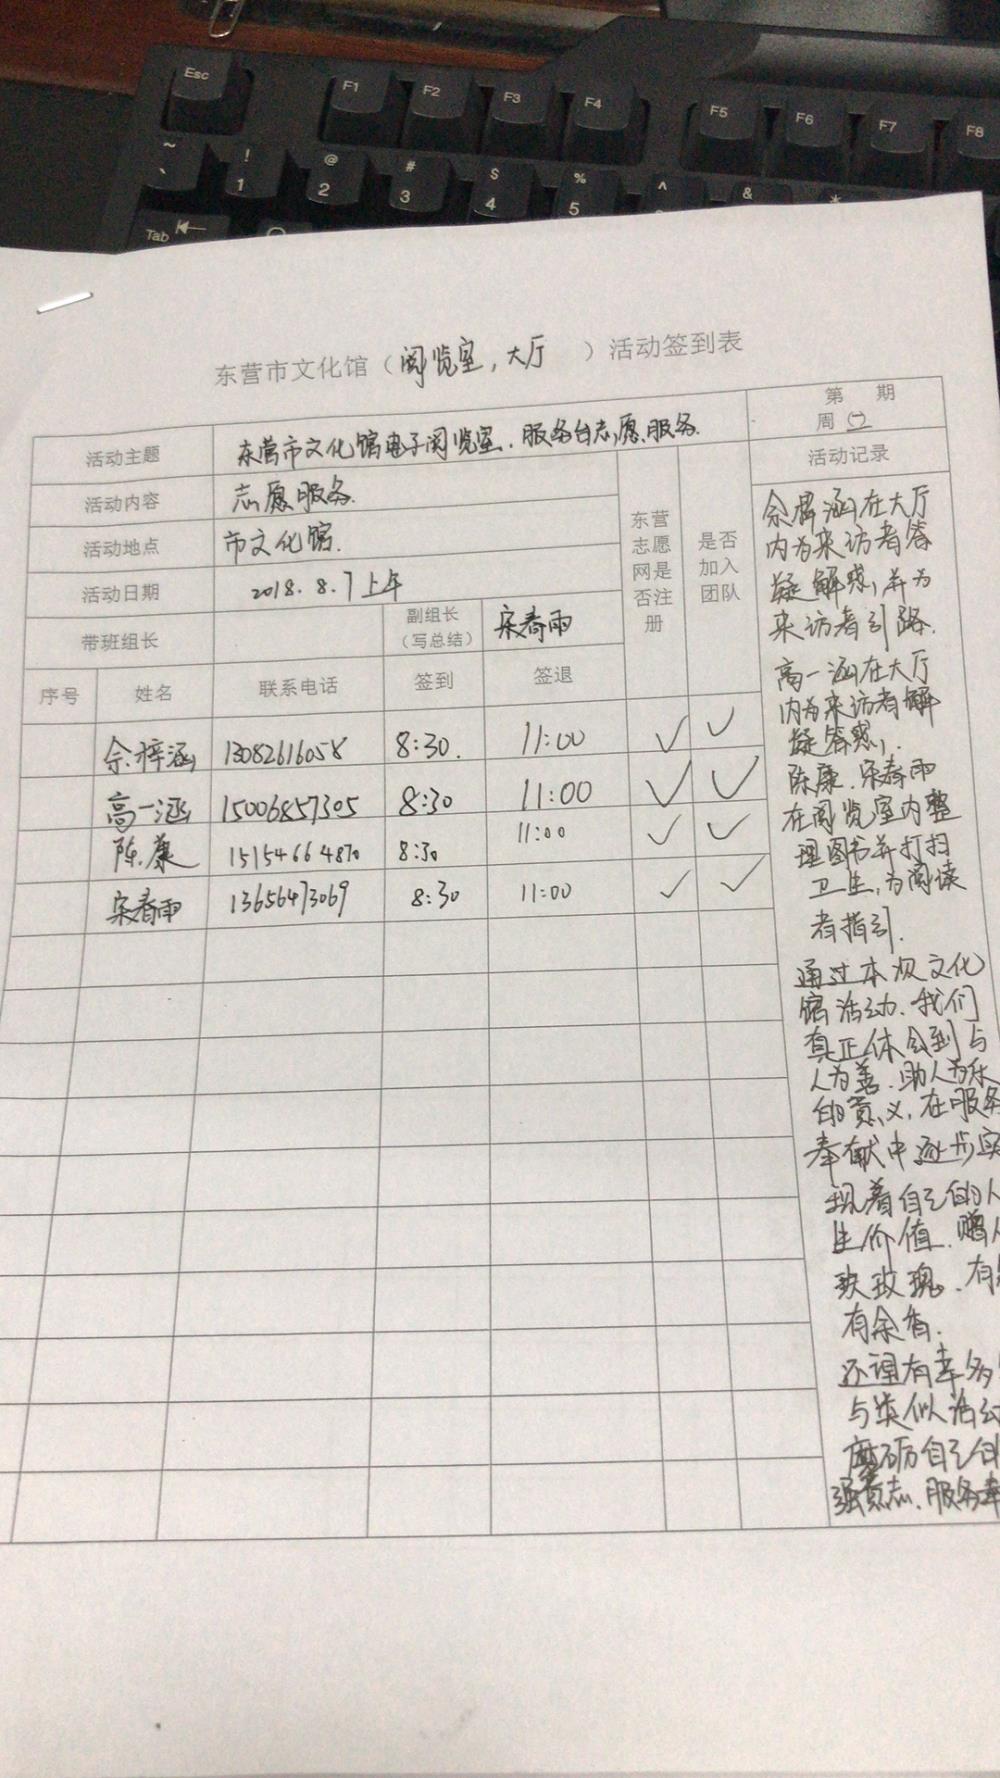 Esc F1 F2 F3 F4 F5 F6 F7 F8
~ ` ! 1 @ 2 # 3 $ 4 % 5 ^ & *
Tab
东营市文化馆（阅览室，大厅 ）活动签到表
第 期
周
活动主题 东营市文化馆电子阅览室、服务台志愿服务.
活动内容 志愿服务.
活动地点 市文化馆.
活动日期 2018.8.7上午
带班组长 副组长（写总结） 宋春雨
东营志愿网是否注册
是否加入团队
活动记录
序号 姓名 联系电话 签到 签退
佘梓涵 13082616058 8:30. 11:00 ✓ ✓
高一涵 15006857305 8:30 11:00 ✓ ✓
陈康 15154664870 8:30 11:00 ✓ ✓
宋春雨 13656473069 8:30 11:00 ✓ ✓
佘梓涵在大厅
内为来访者答
疑解惑,并为
来访者引路.
高一涵在大厅
内为来访者解
疑答惑,.
陈康.宋春雨
在阅览室内整
理图书并打扫
卫生,为阅读
者指引.
通过本次文化
馆活动.我们
真正体会到与
人为善.助人为乐
的意义,在服务
奉献中逐步实
现着自己的人
生价值.赠人
玫瑰.有
有余香.
还望有幸多
与类似活动
磨砺自己的
强意志.服务